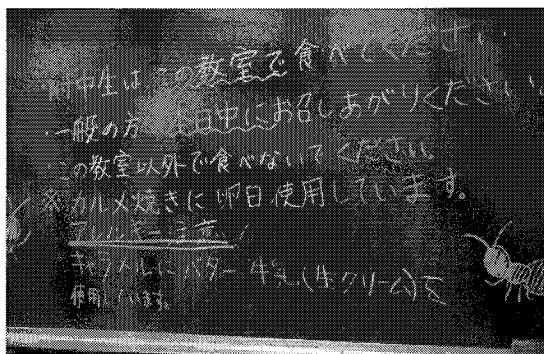 ・附中生はこの教室で食べてください
・一般の方 本日中にお召しあがりください。
・この教室以外で食べないでください。
※カルメ焼きに卵白使用しています。
アレルギー注意！
キャラメルにバター 牛乳(生クリーム)を
使用しています。